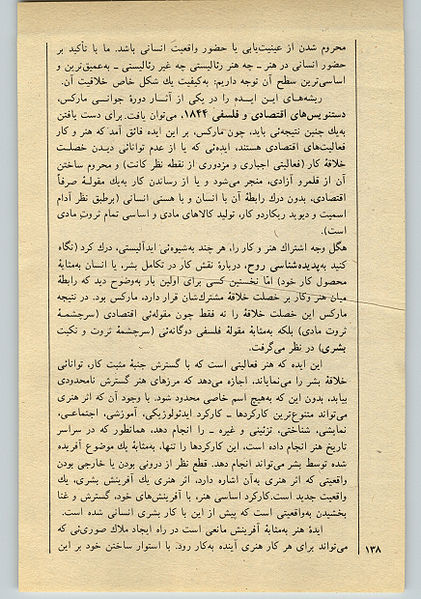 محروم شدن از عینیت‌یابی یا حضور واقعیت انسانی باشد. ما با تأکید بر
حضور انسانی در هنر ـ چه هنر رئالیستی چه غیر رئالیستی ـ به‌عمیق‌ترین و
اساسی‌ترین سطح آن توجه داریم: به‌کیفیت یك شکل خاص خلاقیت آن.
ریشه‌های ایـن ایـده را در یکی از آثار دورهٔ جوانـی مارکس،
دستنویس‌های اقتصادی و فلسفی ۱۸۴۴، می‌توان یافت. برای دست یافتن
به‌یك چنین نتیجه‌ئی باید، چون مارکس، بر این ایده فائق آمد که هنر و کار
فعالیت‌های اقتصادی هستند، ایده‌ئی که یا از عدم توانائی دیـدن خصلـت
خلاقهٔ کار (فعالیتی اجباری و مزدوری از نقطه نظر کانت) و محروم ساختن
آن از قلمرو آزادی، منجر می‌شود و یا از رساندن کار به‌یك مقولـهٔ صرفاً
اقتصادی، بدون درك رابطهٔ آن با انسان و با هستی انسانی (برطبق نظر آدام
اسمیت و دیوید ریکاردو کار، تولید کالاهای مادی و اساسی تمام ثروت مادی
است).
هگل وجه اشتراك هنر و کار را، هر چند به‌شیوه‌ئی ایدآلیستی، درك کرد (نگاه
کنید به‌پدیده‌شناسی روح، دربارهٔ نقش کار در تکامل بشر، یا انسان به‌مثابهٔ
محصول کار خود) امّا نخستین کسی برای اولین بار به‌وضوح دید که رابطهٔ
میان هنر وکار بر خصلت خلاقهٔ مشترك‌شان قرار دارد، مارکس بود. در نتیجه
مارکس این خصلت خلاقه را نه فقط چون مقوله‌ئی اقتصادی (سرچشمـهٔ
ثروت مادی) بلکه به‌مثابهٔ مقولهٔ فلسفی دوگانه‌ئی (سرچشمهٔ ثروت و نکبت
بشری) در نظر می‌گرفت.
این ایده که هنر فعالیتی است که با گسترش جنبهٔ مثبت کار، توانائی
خلاقهٔ بشر را می‌نمایاند، اجازه می‌دهد که مرزهای هنر گسترش نامحدودی
بیابد، بدون این که به‌هیچ اسم خاصی محدود شود. با وجود آن که اثر هنری
می‌تواند متنوع‌ترین کارکردها ـ کارکرد ایدئولوژیکی، آموزشی، اجتماعـی،
نمایشی، شناختی، تزئینی و غیره ـ را انجام دهد، همانطور که در سراسر
تاریخ هنر انجام داده است، این کارکردها را تنها، به‌مثابهٔ یك موضوع آفریده
شده توسط بشر می‌تواند انجام دهد. قطع نظر از درونی بودن یا خارجی بودن
واقعیتی که اثر هنری به‌آن اشاره دارد، اثر هنری یك آفرینش بشری، یك
واقعیت جدید است.کارکرد اساسی هنر، با آفرینش‌های خود، گسترش و غنا
بخشیدن به‌واقعیتی است که پیش از این با کار بشری انسانی شده است.
ایدهٔ هنر به‌مثابهٔ آفرینش مانعی است در راه ایجاد ملاك صوری‌ئی که
می‌تواند برای هر کار هنری آینده به‌کار رود. با استوار ساختن خود بر این
۱۳۸